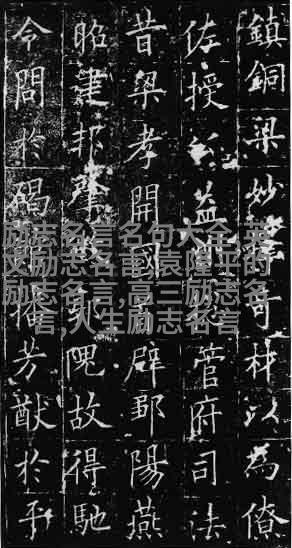 鎮銅梁妙擇奇材以為僚
佐授公益州管府司法
昔梁孝開國首辟鄒陽燕
昭建邦肇致郭隗故得馳
令問於碣播芳猷於平
励志名言名句大全,英
文励志名言,袁隆平的
励志名言,高三励志名
言,人生励志名言